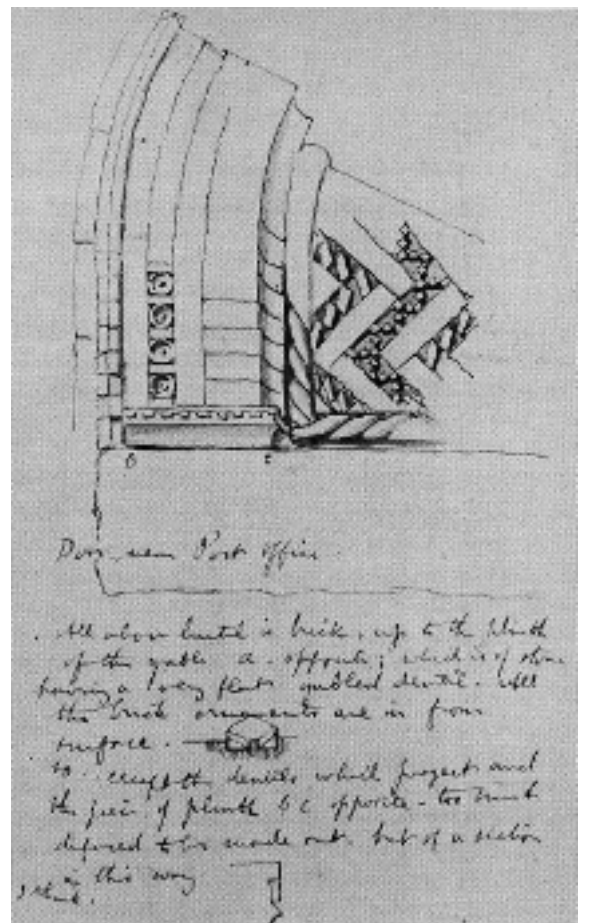 b c
Door near Post Office.
All above lintel is brick, up to the plinth
of the gable a. opposite; which is of stone
having a very flat dentil. All
the brick ornaments are in from
surface.
so except the dentils which project and
the piece of plinth b c opposite - too much
defaced to be made out, but of a section
in this way
I think.